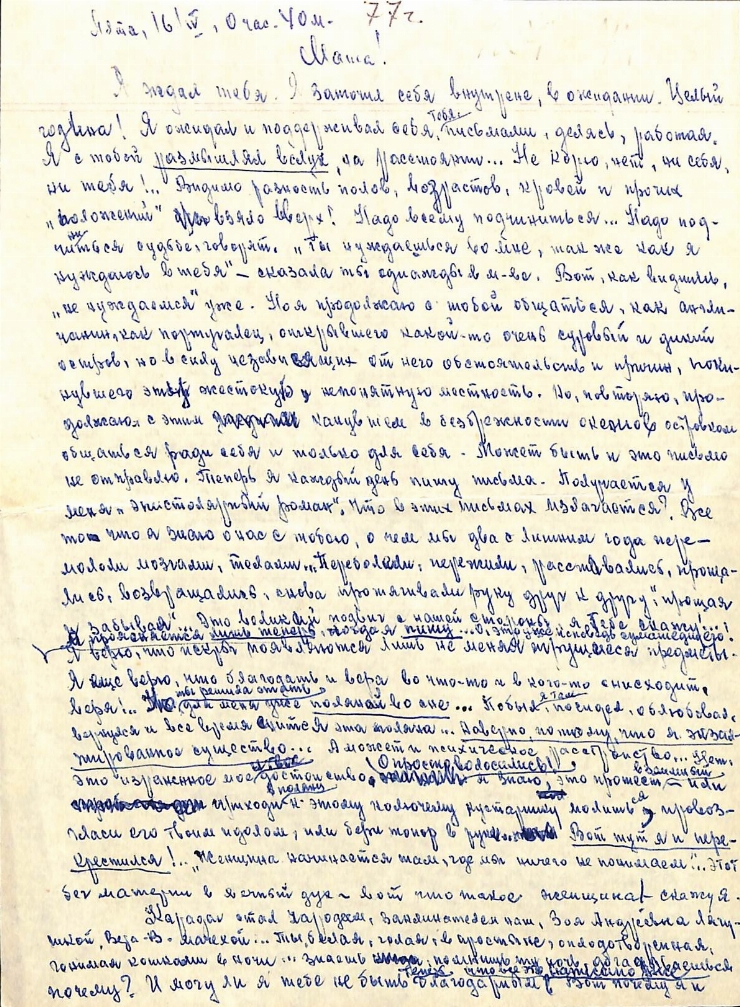 Ялта, 16/IV, 0 час. 40 м. 77 г.
Маша!
Я ждал тебя. Я заточил себя внутрене, в ожидании. Целый
година! Я ожидал и поддерживал себя, тобя, письмами, делясь, работая.
Я с тобой размышлял вслух, на расстоянии... Не корю, нет, ни себя,
ни тебя!.. Видимо разность полов, возрастов, кровей и прочих
„положений" взяло вверх! Надо всему подчиниться... Надо под-
чиниться судьбе, говорят. „Ты нуждаешься во мне, так же как я
нуждаюсь в тебе" – сказала ты однажды в м-ве. Вот, как видишь,
„не нуждаемся" уже. Но я продолжаю с тобой общаться, как англи-
чанин, как португалец, открывшего какой-то очень суровый и дикий
остров, но в силу независящих от него обстоятельств и причин, поки-
нувшего эту жестокую и непонятную местность. Но, повторяю, про-
должаю с этим канувшем в безбрежности океанов островком
общаться ради себя и только для себя. Может быть и это письмо
не отправлю. Теперь я каждый день пишу письма. Получается у
меня „эпистолярный роман". Что в этих письмах излагается? Все
то что я знаю о нас с тобою, о чем мы два с лишним года пере-
мололи мозгами, телами... Переболели, пережили, расставались, проща-
лись, возвращались, снова протягивали руку друг к другу, „прощая
и забывая"... Это великий подвиг с нашей стороны, я тебе скажу!..!
И проясняется лишь теперь, когда я пишу... О, это уже исповедь сумасшедшего!
Я верю, что искры появляются лишь не меняя трущиеся предметы.
Я еще верю, что благодать и вера во что-то и в кого-то снисходит,
веря!.. ты решила стать для меня уже поляной во сне... Побыл я там, посидел, облюбовал,
вернулся и все время снится эта поляна... Наверно, потому, что я экзаль-
тированное существо... А может и психическое расстройство... Нет,
это израненное мое достоинство, и все Опростоволосились! я знаю, это протест – или
приходи к этому колючему кустарнику молиться, провоз-
гласи его твоим идолом, или бери топор в руки... Вот тут я и пере-
крестился!.. „Женщина начинается там, где мы ничего не понимаем"... Этот
бег материи в вечный дух – вот что такое женщина – скажу я.
Карадаг стал Чародеем, заклинателем наш, Зоя Андреевна Лягу-
шкой, Вета-В- мачехой... Ты, белая, голая, в простыне, оплодотворенная,
гонимая кошками в ночи... Знаешь помнишь ту ночь, догадываешься
почему? И могу ли я тебе не быть благодарным Вот почему я и